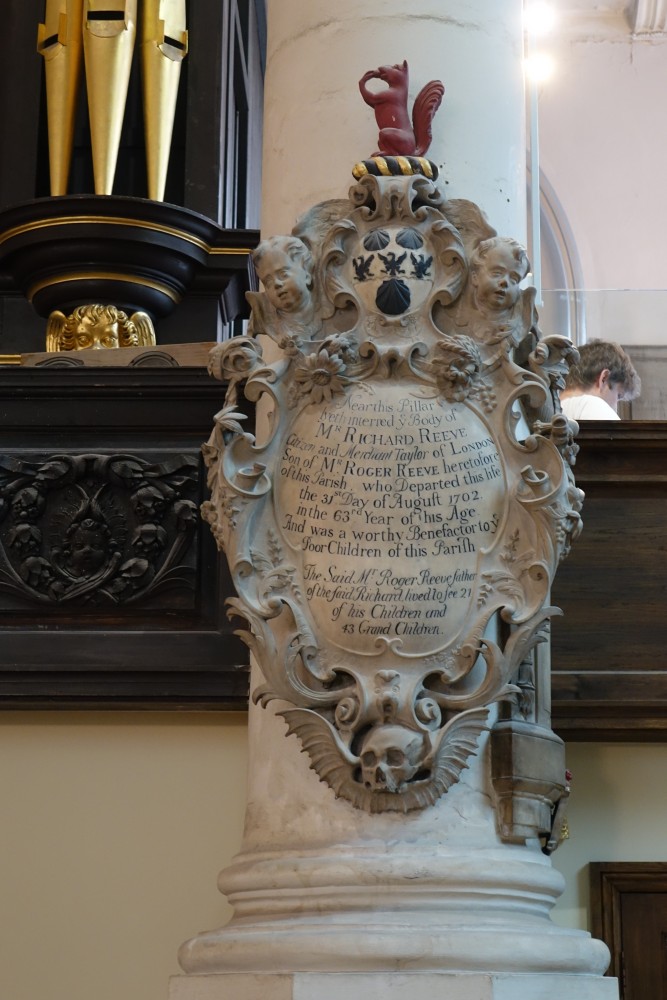 Near this Pillar
lyeth interred yͤ Body of
Mͬ RICHARD REEVE
Citizen and Merchant Taylor of LONDON
Son of Mͬ ROGER REEVE heretofore
of this Parish, who Departed this life
the 31ˢᵗ Day of Auguſt 1702.
in the 63ᵈ Year of his Age
And was a worthy Benefactor to yͤ
Poor Children of this Pariſh
The Said Mͬ Roger Reeve father
of the ſaid Richard lived to ſee 21
of his Children and
43 Grand Children.